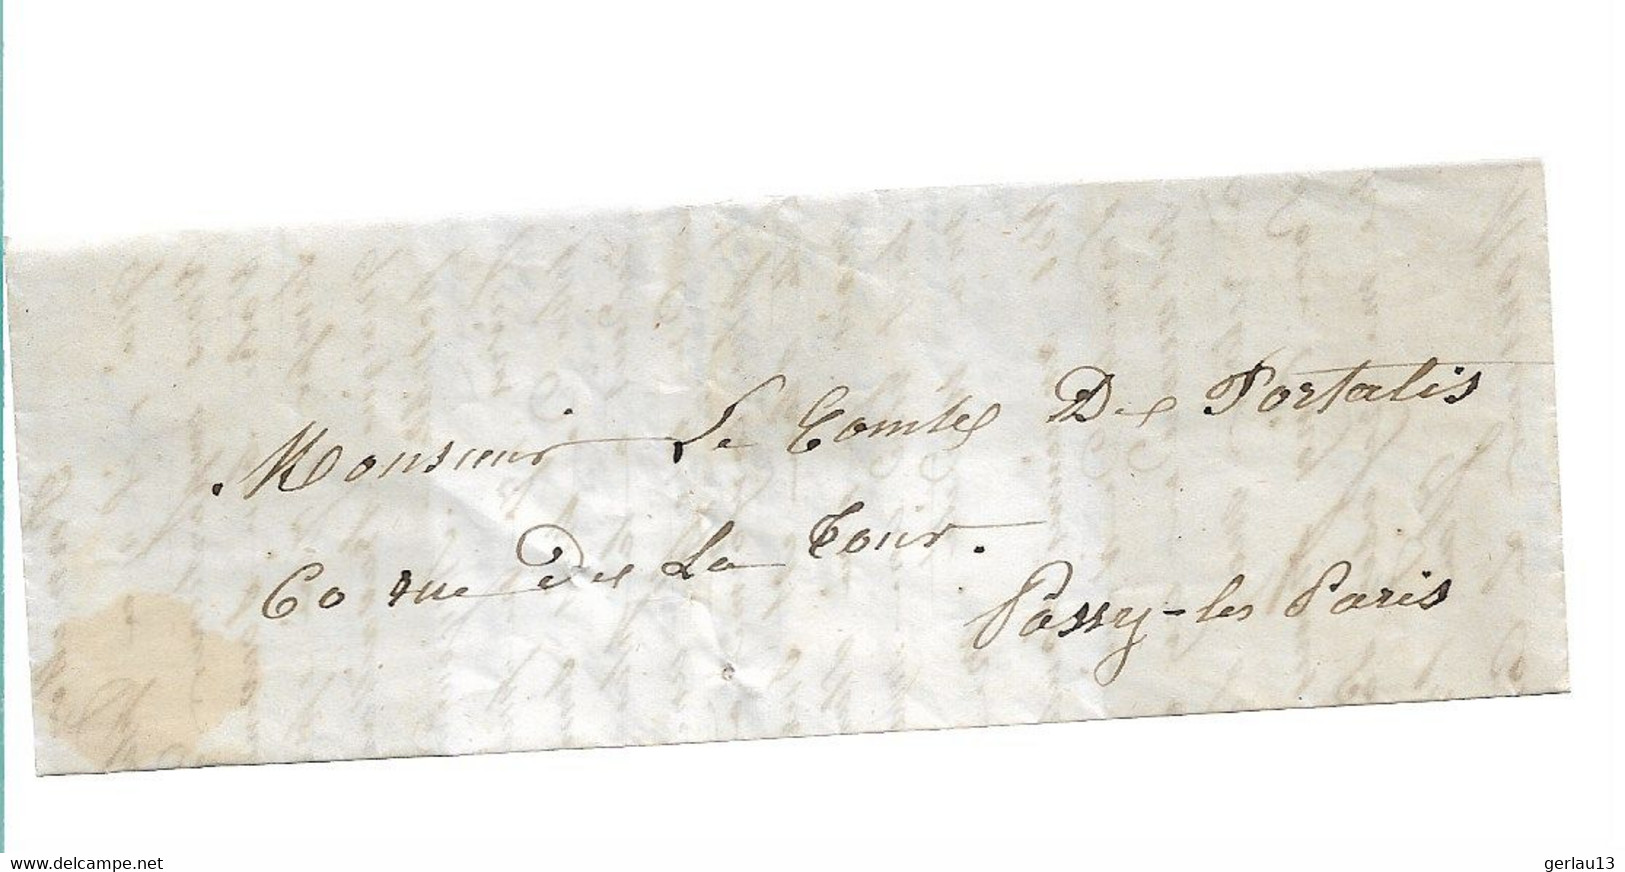 Monsieur Le Comte De Portalis
60 rue De La Tour.
Passy-les Paris
www.delcampe.net
gerlau13